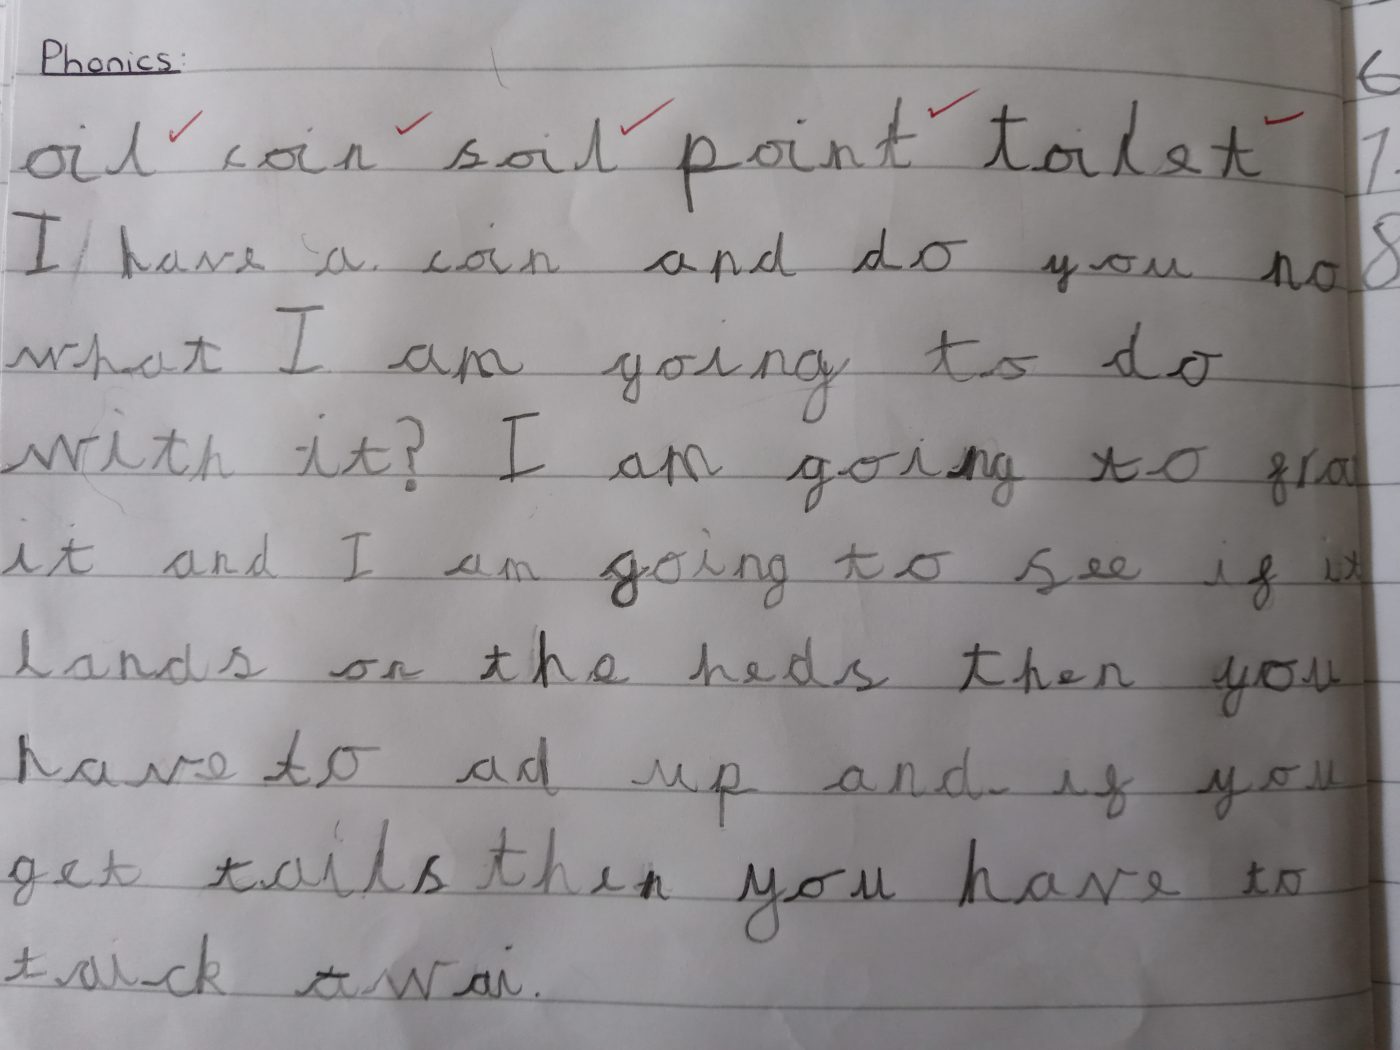 Phonics:
oil coin soil point toilet
I have a coin and do you no
what I am going to do
with it? I am going to
it and I am going to see if it
lands on the heds then you
have to ad up and if you
get tails then you have to
taick awai.
6
7
8